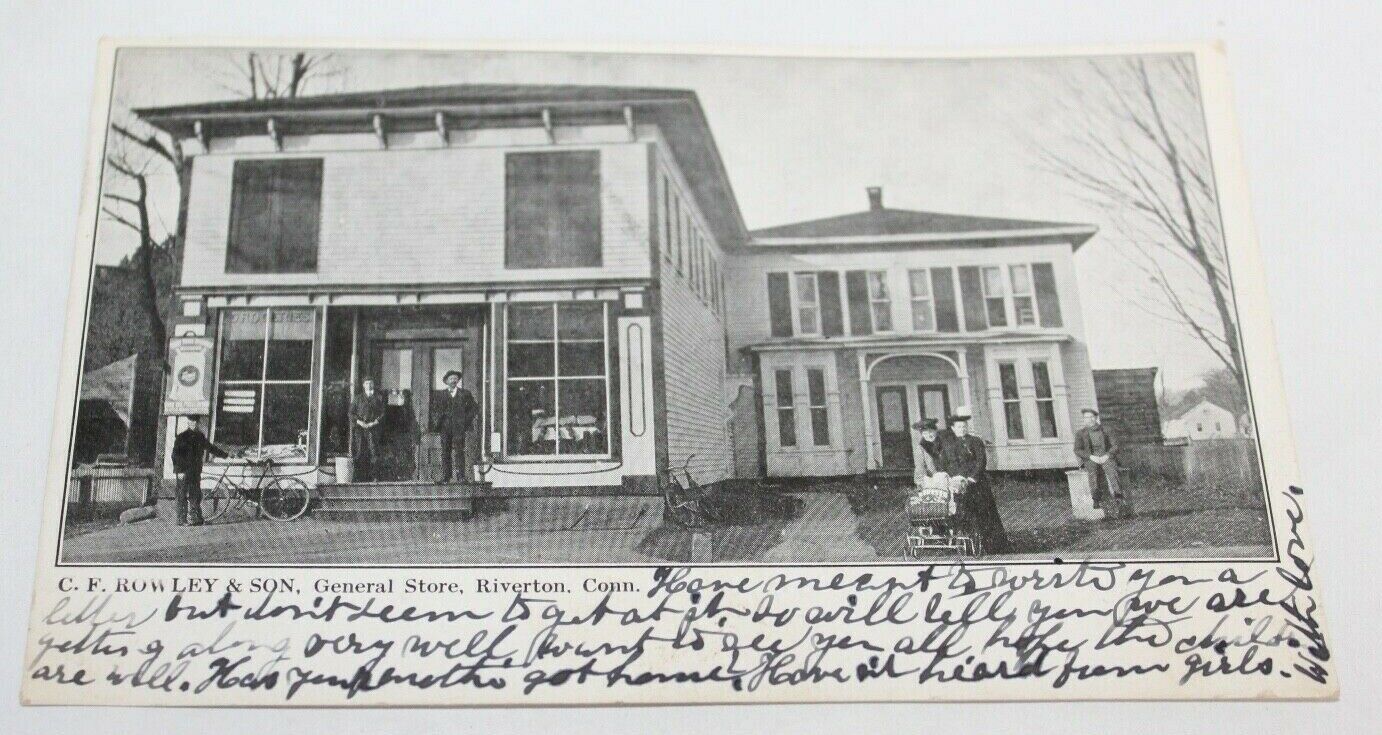 GROCERIES
C. F. ROWLEY & SON, General Store, Riverton, Conn. Have meant to write you a
letter but don't seem to get at it, so will tell you we are
getting along very well, want to see you all hope the
are well. Has got home. Haven't heard from girls.
With love.